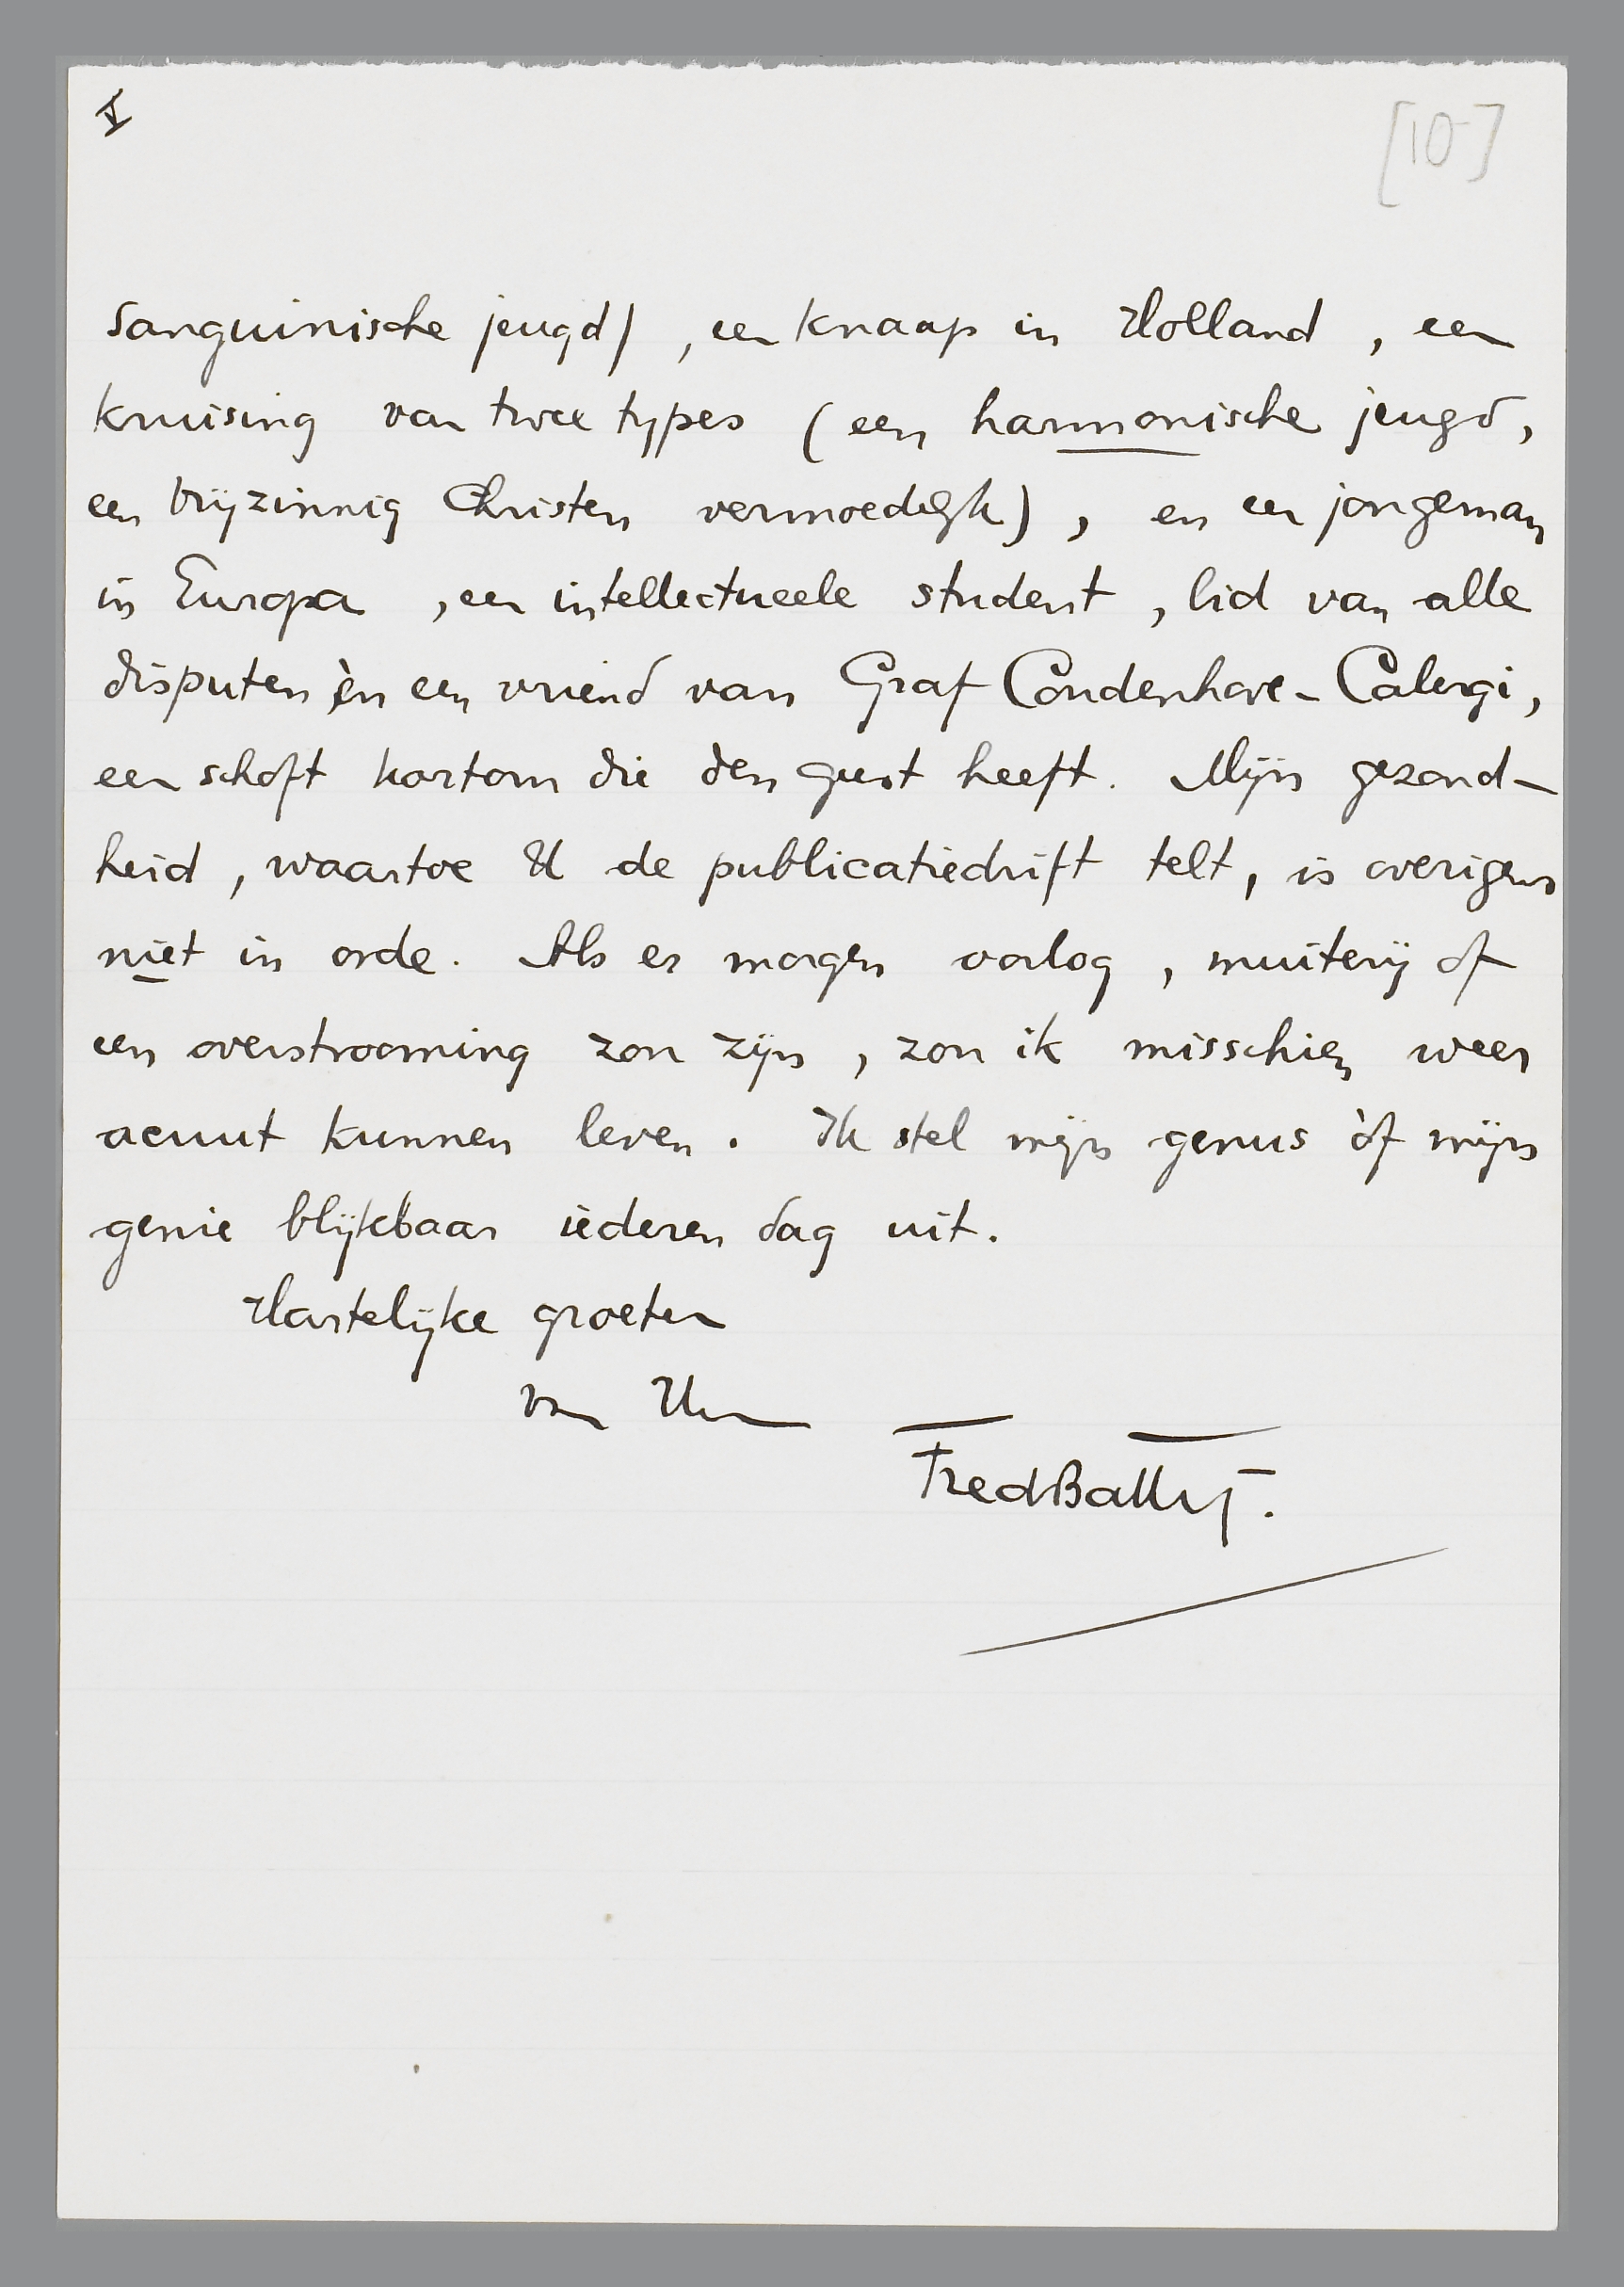 V
[10]
sanguinische jeugd), een knaap in Holland, een
kruising van twee types (een harmonische jeugd,
een vrijzinnig Christen vermoedelijk), en een jongeman
in Europa, een intellectueele student, lid van alle
disputen èn een vriend van Graf Coudenhove-Calergi,
een schoft kortom die den geest heeft. Mijn gezond-
heid, waartoe U de publicatiedrift telt, is overigens
niet in orde. Als er morgen oorlog, muiterij of
een overstrooming zou zijn, zou ik misschien weer
acuut kunnen leven. Ik stel mijn genus òf mijn
genie blijkbaar iederen dag uit.
Hartelijke groeten
van Uw
FredBatten.